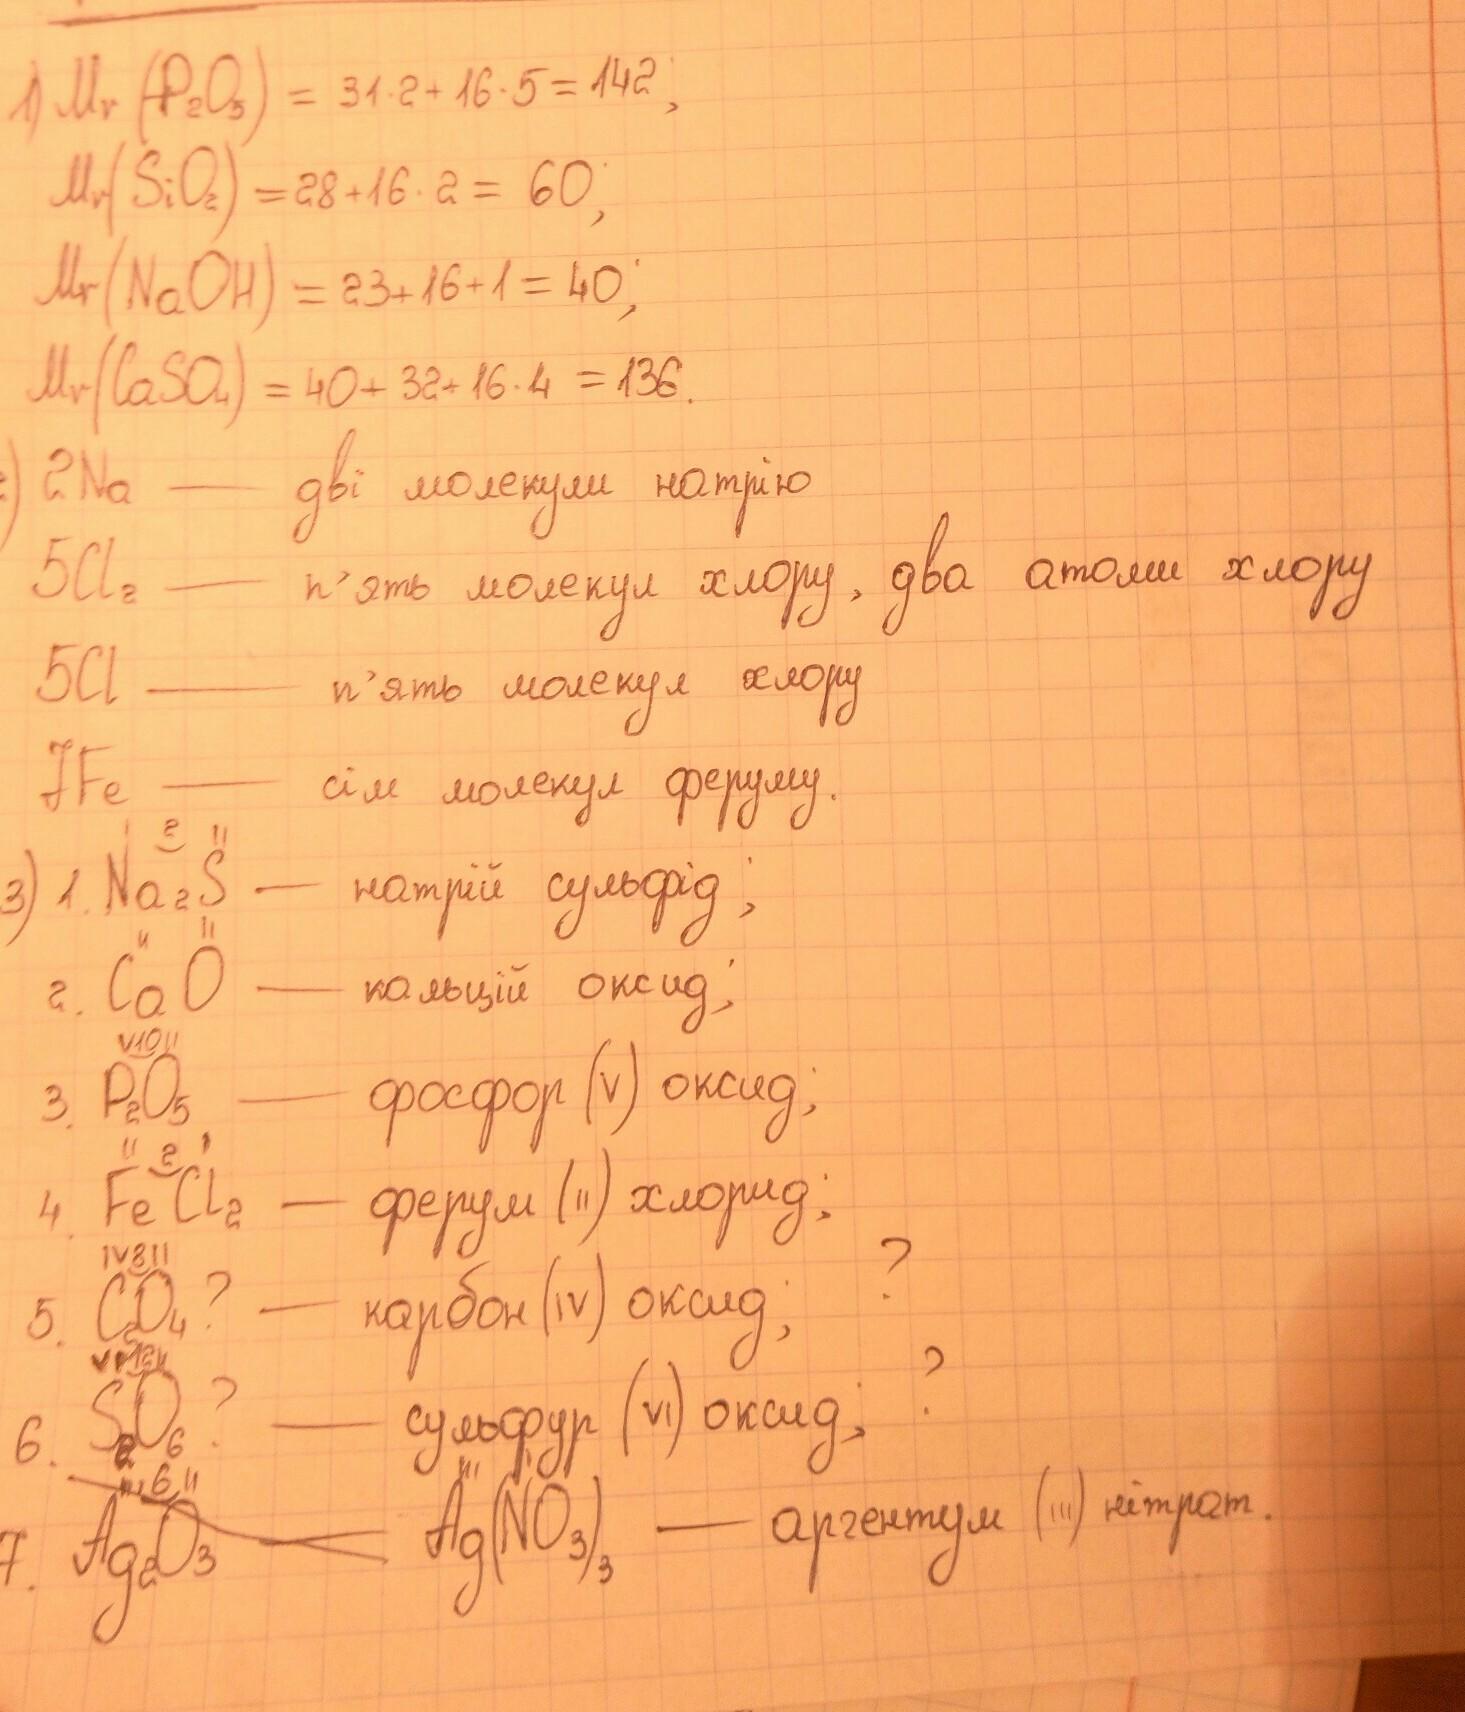 1) Mr (P₂O₅) = 31·2+16·5=142;
Mr(SiO₂) =28+16·2= 60;
Mr(NaOH) = 23+16+1=40;
Mr(CaSO₄) =40+32+16·4 =136.
2) 2Na — дві молекули натрію
5Cl₂ — п'ять молекул хлору, два атоми хлору
5Cl — п'ять молекул хлору
7Fe — сім молекул феруму.
I 2 II
3) 1. Na₂S — натрій сульфід;
II II
2. CaO — кальцій оксид;
V10II
3. P₂O₅ — фосфор (V) оксид;
II 2 I
4. FeCl₂ — ферум (II) хлорид;
IV8II
5. C₂O₄? — карбон (IV) оксид; ?
VI12II
6. S₂O₆? — сульфур (VI) оксид; ?
III 6 II III I
7. Ag₂O₃ Ag(NO₃)₃ — аргентум (III) нітрат.